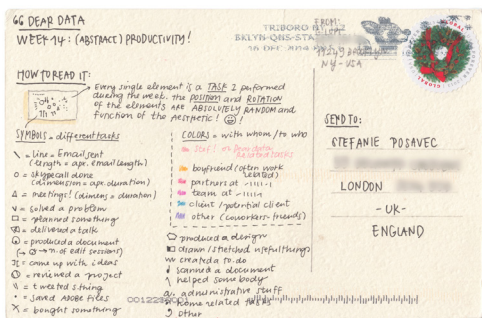 66 DEAR DATA
WEEK 14: (ABSTRACT) PRODUCTIVITY!
HOW TO READ IT:
Every single element is a TASK I performed
during the week. the POSITION and ROTATION
of the elements are ABSOLUTELY RANDOM and
function of the Aesthetic!
SYMBOLS = different tasks
\ = Line = Email sent
(length = apx. email length)
O = skype call done
(dimension = apx. duration)
Δ = meetings! (dimens = duration)
V = solved a problem
□ = planned something
= delivered a talk
= produced a document
(→ → n. of edit sessions)
= came up with ideas
= reviewed a project
\\ = tweeted s.thing
• = saved ADOBE files
X = bought something
COLORS = with whom / to who
Self! or Dear data
Related tasks
boyfriend (often work related)
partners at -//-//-/
team at -//-//-/
client / potential client
other (coworkers-friends)
produced a design
drawn/sketched useful things
created a to.do
scanned a document
helped somebody
administrative stuff
home related tasks
other
FROM:
TRIBORO NY 112
BKLYN-QNS-STA
16 DEC 2014
NY - USA
GLOBAL
SEND TO:
STEFANIE POSAVEC
LONDON
- UK -
ENGLAND